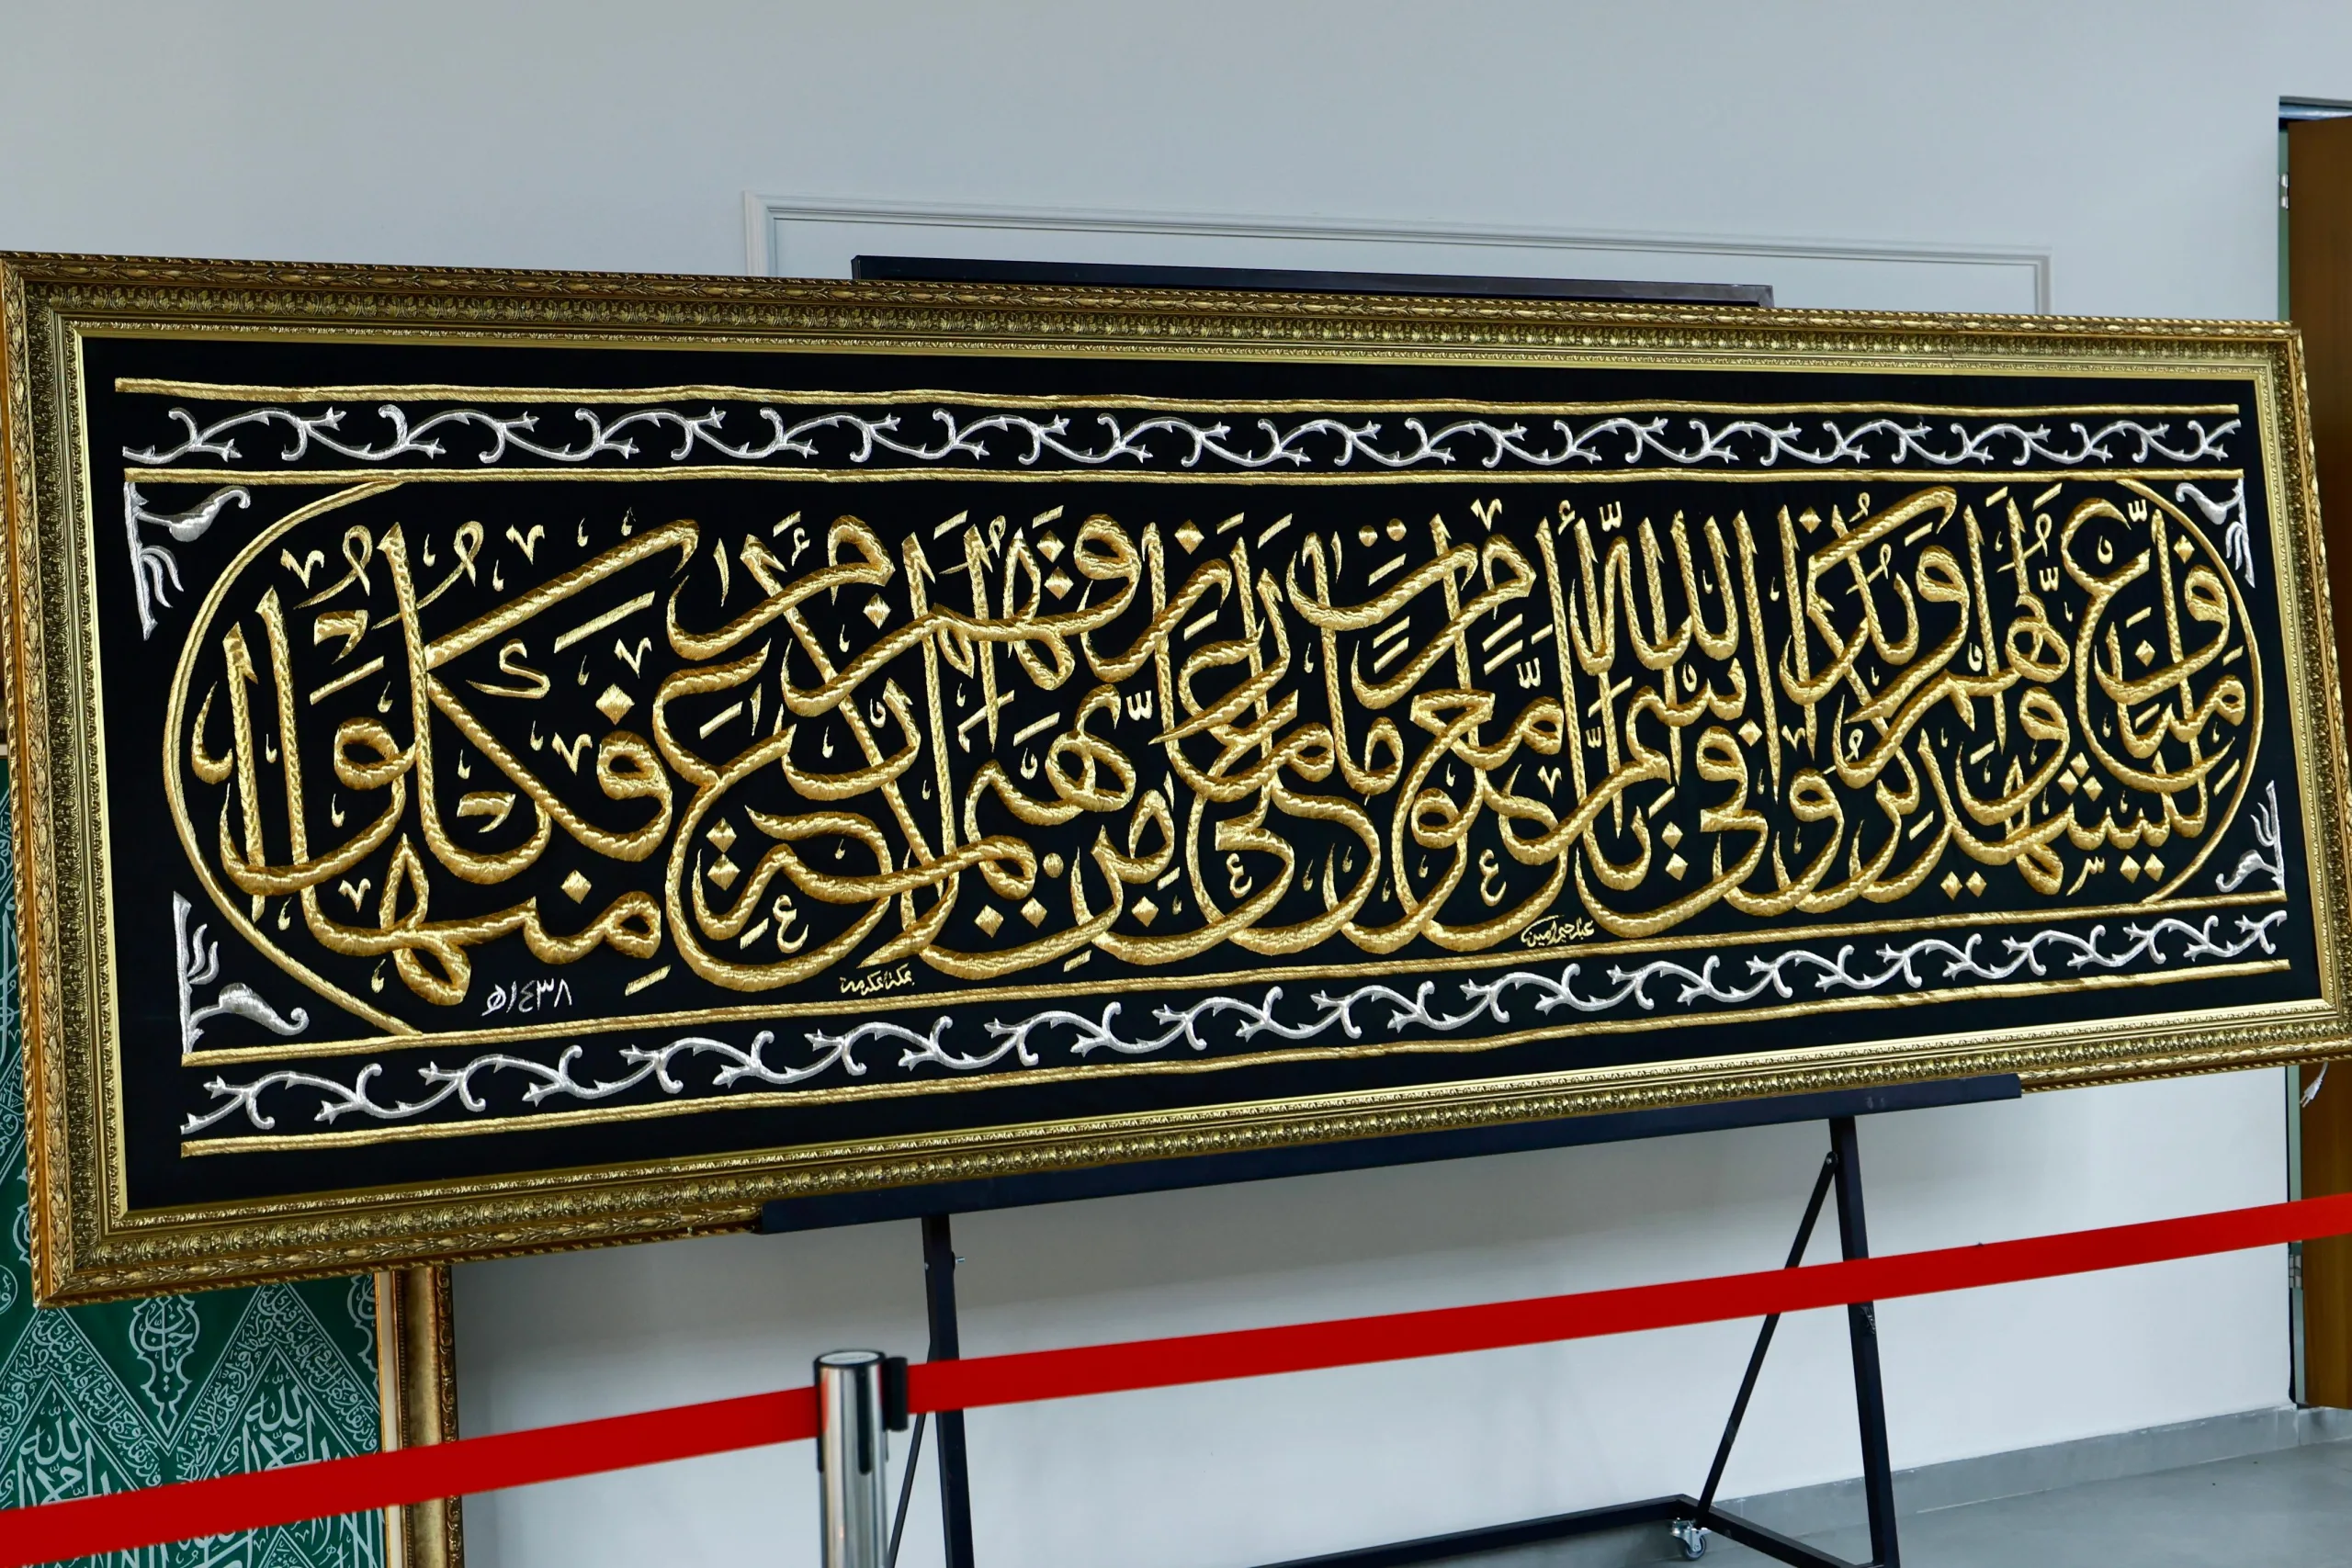 لِيَشْهَدُوا مَنَافِعَ لَهُمْ وَيَذْكُرُوا اسْمَ اللَّهِ فِي أَيَّامٍ مَّعْلُومَاتٍ عَلَىٰ مَا رَزَقَهُمْ مِنْ بَهِيمَةِ الْأَنْعَامِ فَكُلُوا مِنْهَا
عبدالرحيم أمين
بمكة المكرمة
١٤٣٨هـ